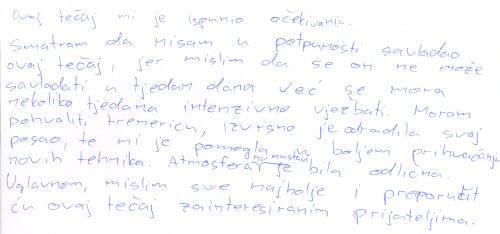 Ovaj tečaj mi je ispunio očekivanja.
Smatram da nisam u potpunosti savladao
ovaj tečaj, jer mislim da se on ne može
savladati u tjedan dana već se mora
nekoliko tjedana intenzivno vježbati. Moram
pohvaliti trenericu, izvrsno je odradila svoj
posao, te mi je pomogla u boljem prihvaćanju
novih tehnika. Atmosfera na nastavi je bila odlična.
Uglavnom, mislim sve najbolje i preporučit
ću ovaj tečaj zainteresiranim prijateljima.